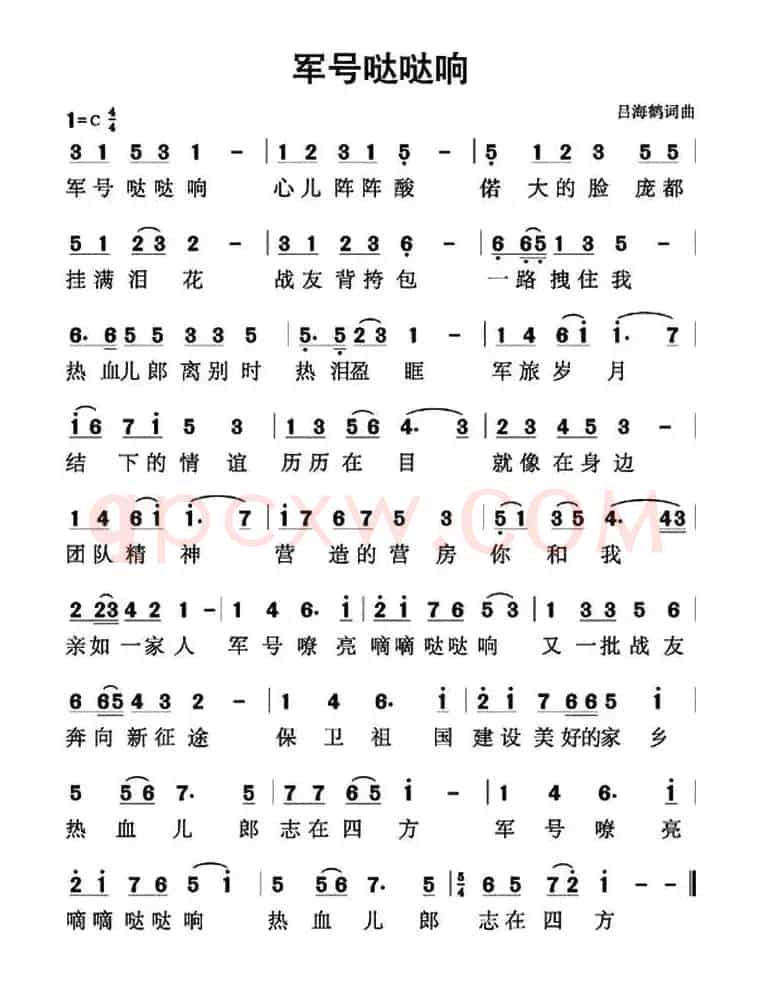 军号哒哒响
1=C 4/4
吕海鹤词曲
3 1 5 3 1 - | 1 2 3 1 5 - | 5 1 2 3 5 5 |
军号哒哒响 心儿阵阵酸 偌大的脸庞都
5 1 2 3 2 - | 3 1 2 3 6 - | 6 6 5 1 3 5 - |
挂满泪花 战友背挎包 一路拽住我
6. 6 5 5 3 3 5 | 5. 5 2 3 1 - | 1 4 6 i i. 7 |
热血儿郎离别时 热泪盈眶 军旅岁月
i 6 7 i 5 3 | 1 3 5 6 4. 3 | 2 3 4 5 3 - |
结下的情谊 历历在目 就像在身边
1 4 6 i i. 7 | i 7 6 7 5 3 | 5 1 3 5 4. 4 3 |
团队精神 营造的营房你和我
2 2 3 4 2 1 - | 1 4 6. i | 2 i 7 6 5 3 | 1 3 3 5 6 |
亲如一家人 军号嘹亮嘀嘀哒哒响 又一批战友
6 6 5 4 3 2 - | 1 4 6. i | 2 i 7 6 6 5 |
奔向新征途 保卫祖国建设美好的家乡
5 5 6 7. 5 | 7 7 6 5 i - | 1 4 6. i |
热血儿郎志在四方 军号嘹亮
2 i 7 6 5 i | 3 5 5 6 7. 5 | 5/4 6 5 7 2 i - - ‖
嘀嘀哒哒响 热血儿郎志在四方
qpcxw.COM